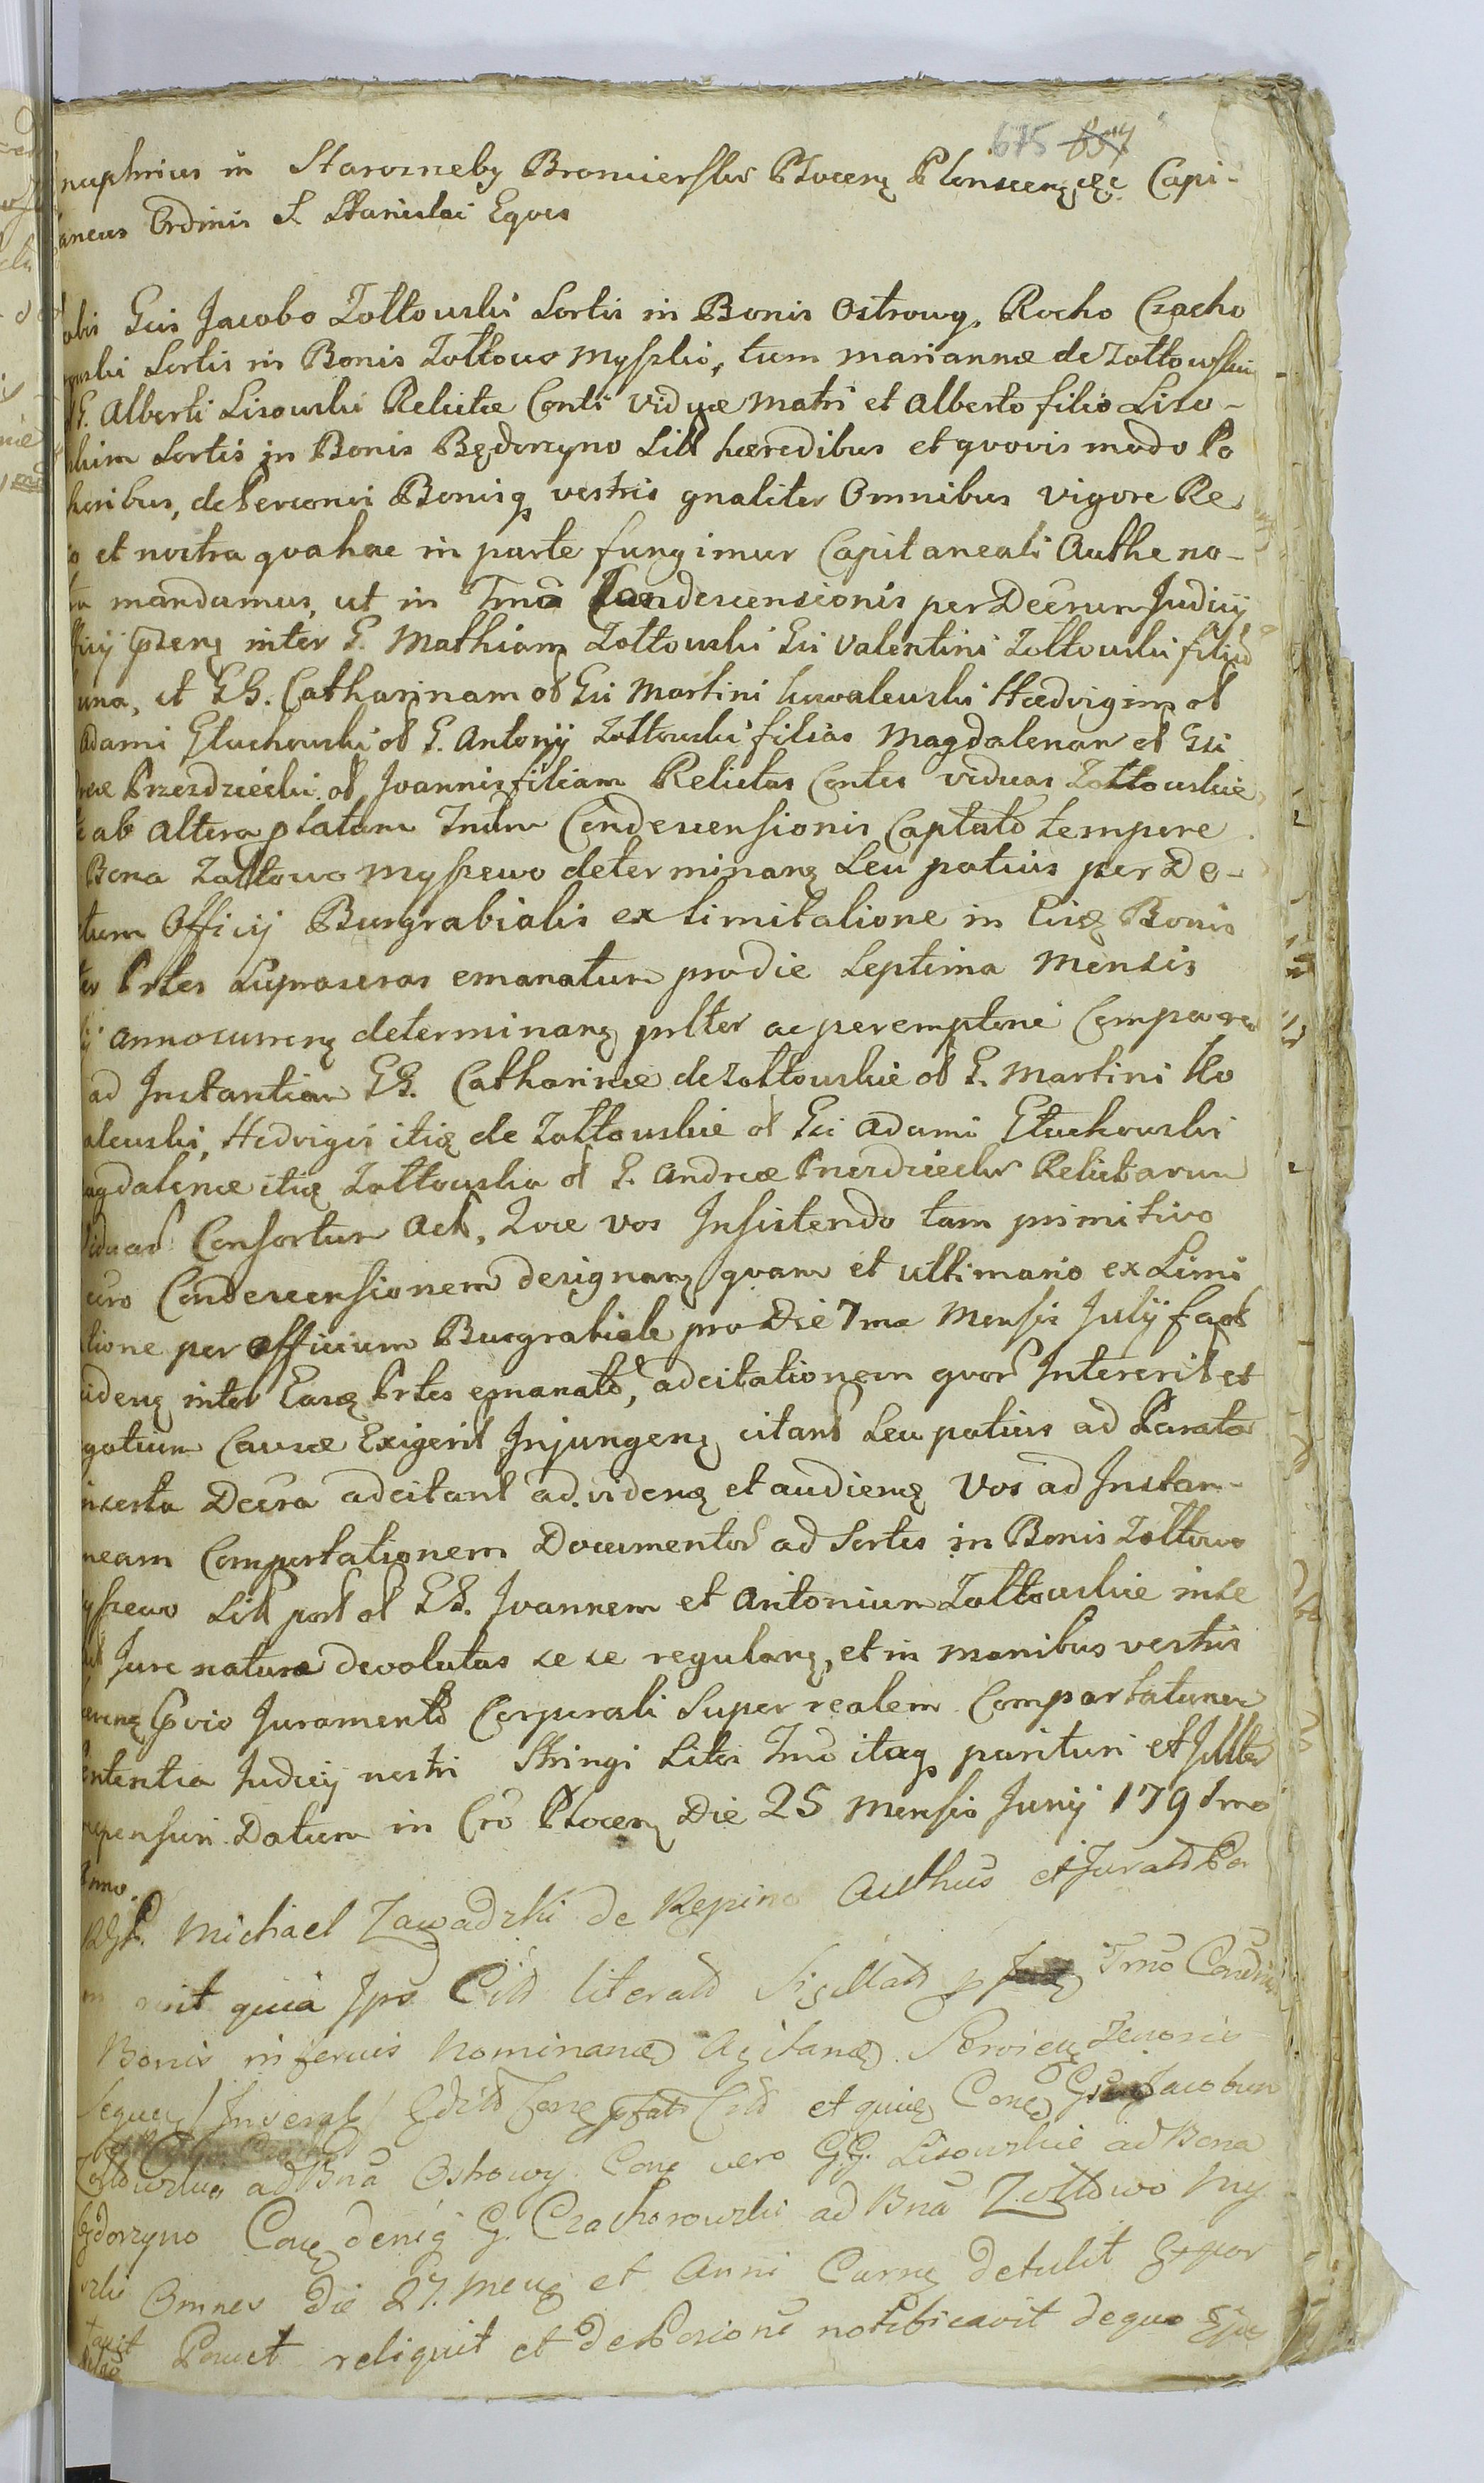 675 657
nuphrius in Starorzeby Bromierski Plocen Plonscen etc Capi-
aneus Ordinis S. Stanislai Eques
obis Gsis Jacobo Zołtowski Sortis in Bonis Ostrowy, Rocho Czacho
owski Sortis in Bonis Zołtowo Myszki, tum Mariannæ de Zołtowskie
G. Alberti Lisowski Relictæ Conti Viduæ Matri et Alberto filio Liso-
skim Sortis in Bonis Będorzyno Sitt hæredibus et quovis modo Po
horibus, de Personis Bonisq vestris gnaliter Omnibus vigore Re
o et nostra qua hac in parte fungimur Capitaneali Autthe no-
ra mandamus, ut in Tmo Condescensionis per Decrum Judicij
ficij pten inter G. Mathiam Zołtowski Gsi Valentini Zołtowski filiū
una, et GG. Catharinam ol Gsi Martini Kowalewski Hedvigim ol
Adami Głuchowski ol G. Antonij Zołtowski filias Magdalenam ol Gsi
reæ Przezdziecki ol Joannis filiam Relictas Contes viduas Zołtowskie
ab altera platum Tnum Condescensionis Captato tempore
Bona Zołtowo Myszewo determinan Seu potius per De-
tum Officij Burgrabialis ex limitatione in Eisd Bonis
er Prtes Suprascras emanatum pro die Septima Mensis
ij anno curren determinan pnlter ac peremptorie Compareas
ad Instantiam GG. Catharinæ de Zołtowskie ol G. Martini Ko
alewski, Hedvigis itid de Zołtowskie ol Gsi Adami Głuchowski
agdalenæ itid Zołtowska ol G. Andreæ Przezdziecki Relictarum
iduar Consortum Act, Quæ vos Insistendo tam primitivo
ecro Condescensionem designan quam et ultimario ex Limi
tione per Officium Burgrabiale pro Die 7ma Mensis Julij fact
iden inter Easd Prtes emanato, adcitationem quor Intererit et
gotium Causæ Exigerit Injungen citant Seu potius ad Parata
inserta Decra adcitant ad viden et audien Vos ad Instan-
neam Comportationem Documentor ad Sortes in Bonis Zołtowo
yszewo Sitt post ol GG. Joannem et Antonium Zołtowskie in se
Jure naturæ devolutas se se regulan, et in manibus vestris
eren pvio Juramento Corporali Super realem Comportatunem
ententia Judicij nostri Stringi Sitis Tmo itaq parituri et Juster
repensuri Datum in Cro Plocen Die 25 Mensis Junij 1791mo
Anno.
RGP. Michael Zawadzki de Kępino Authus et Jurats Par
quia Ips Citt literats Sigillats Tmo Condns
Bonis inferius Nominand Agitand Servien Tenoris
Sequen Inserat et quid Con Jacobum
Zołtowskie ad Bna Ostrowy Con vero GG. Lisowskie ad Bona
Będorzyno Con deniq G. Czachorowski ad Bna Zołtowo My
szki Omnes die 27. Men et Anni Curren detulit Expor
tavit reliquit et de Posione notificavit de quo